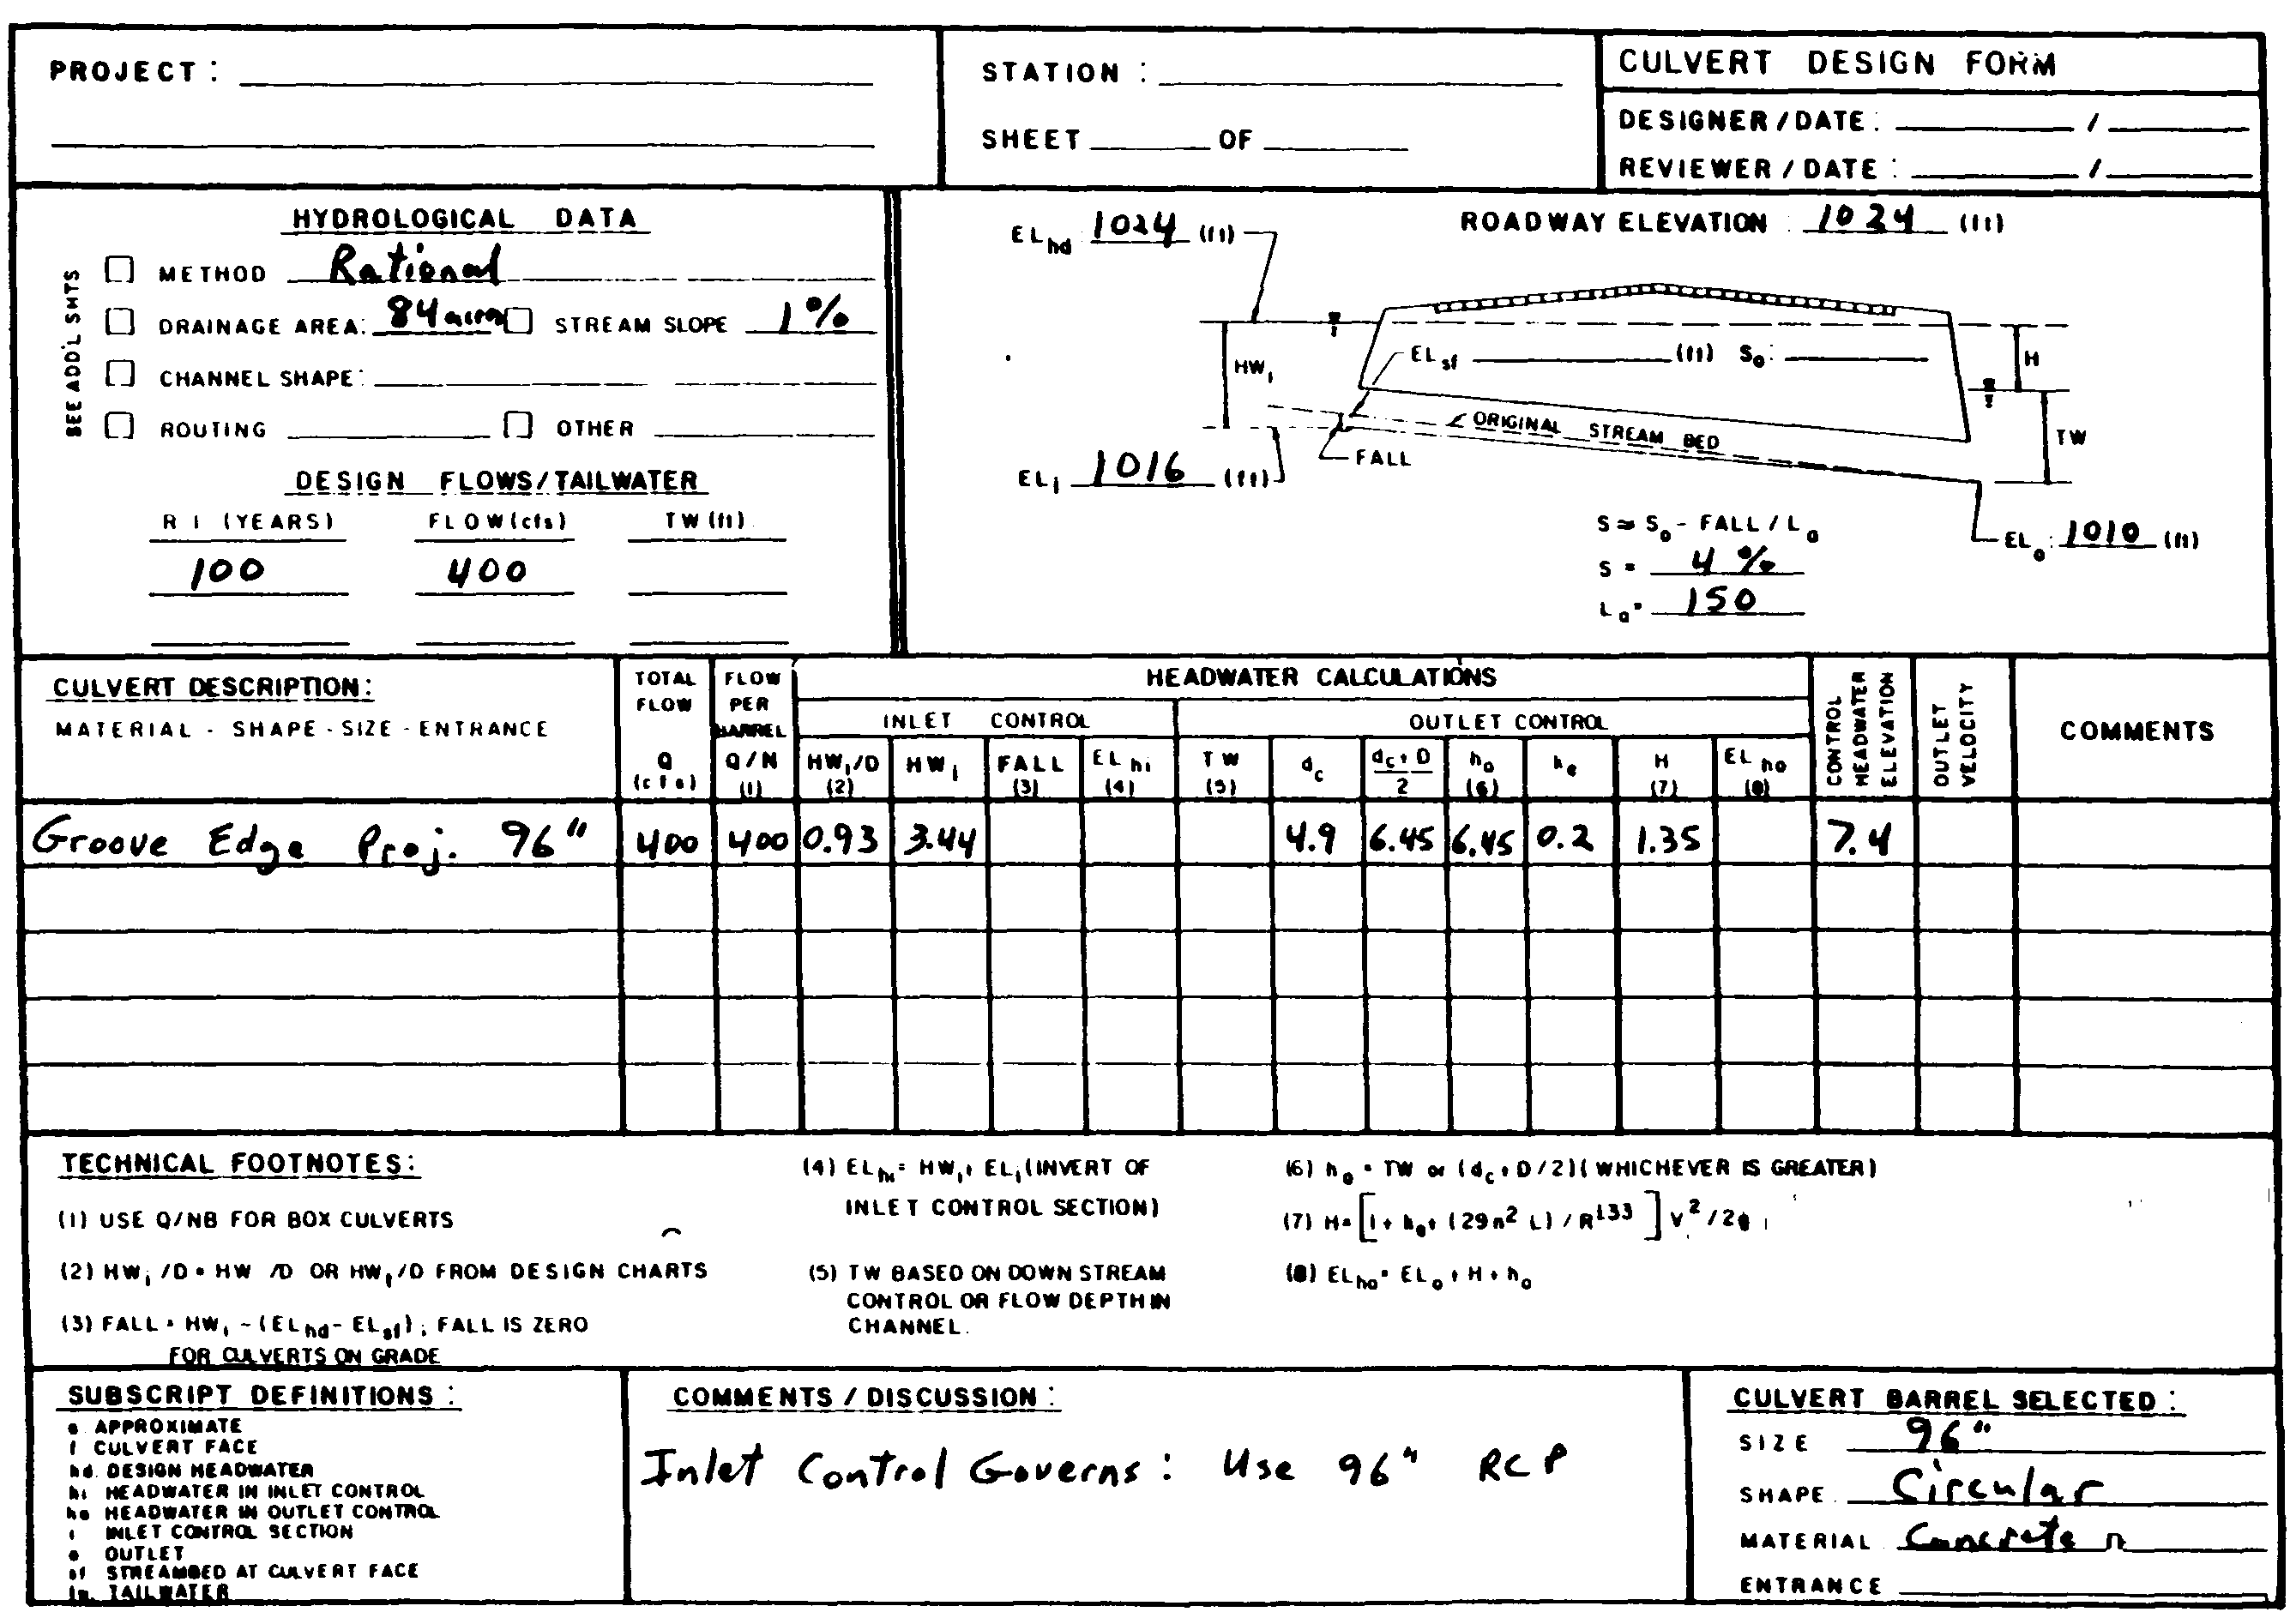 PROJECT :
STATION :
SHEET OF
CULVERT DESIGN FORM
DESIGNER / DATE : /
REVIEWER / DATE : /
HYDROLOGICAL DATA
METHOD Rational
DRAINAGE AREA: 84 acres STREAM SLOPE 1%
CHANNEL SHAPE:
ROUTING OTHER
SEE ADD'L SHTS
DESIGN FLOWS/TAILWATER
R I (YEARS) FLOW(cfs) TW (ft)
100 400
EL hd : 1024 (ft)
ROADWAY ELEVATION : 1024 (ft)
HW i
EL sf (ft) S o :
H
ORIGINAL STREAM BED
TW
FALL
EL i 1016 (ft)
S ≈ S o - FALL / L a
EL o : 1010 (ft)
S = 4 %
L a = 150
CULVERT DESCRIPTION:
MATERIAL - SHAPE - SIZE - ENTRANCE
TOTAL FLOW Q (cfs)
FLOW PER BARREL Q/N (1)
HEADWATER CALCULATIONS
INLET CONTROL
OUTLET CONTROL
HW i /D (2) HW i FALL (3) EL hi (4) TW (5) d c d c + D / 2 h o (6) k e H (7) EL ho (8)
CONTROL HEADWATER ELEVATION
OUTLET VELOCITY
COMMENTS
Groove Edge Proj. 96" 400 400 0.93 3.44 4.9 6.45 6.45 0.2 1.35 7.4
TECHNICAL FOOTNOTES:
(1) USE Q/NB FOR BOX CULVERTS
(2) HW i /D = HW /D OR HW i /D FROM DESIGN CHARTS
(3) FALL = HW i - (EL hd - EL sf); FALL IS ZERO
FOR CULVERTS ON GRADE
(4) EL hi = HW i + EL i (INVERT OF
INLET CONTROL SECTION)
(5) TW BASED ON DOWN STREAM
CONTROL OR FLOW DEPTH IN
CHANNEL.
(6) h o = TW or (d c + D/2)(WHICHEVER IS GREATER)
(7) H = [1 + k e + (29 n² L) / R 1.33] V² / 2g
(8) EL ho = EL o + H + h o
SUBSCRIPT DEFINITIONS :
a. APPROXIMATE
f CULVERT FACE
hd. DESIGN HEADWATER
hi HEADWATER IN INLET CONTROL
ho HEADWATER IN OUTLET CONTROL
i INLET CONTROL SECTION
o OUTLET
sf STREAMBED AT CULVERT FACE
tw. TAILWATER
COMMENTS / DISCUSSION :
Inlet Control Governs : Use 96" RCP
CULVERT BARREL SELECTED :
SIZE 96"
SHAPE Circular
MATERIAL Concrete n
ENTRANCE